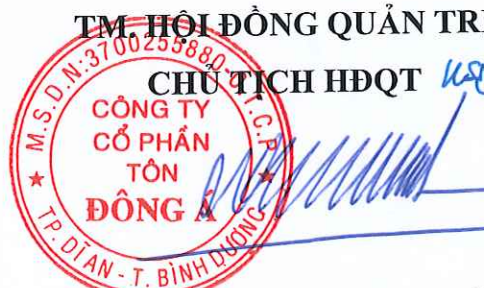 TM. HỘI ĐỒNG QUẢN TRỊ
CHỦ TỊCH HĐQT
M.S.D.N:3700255880-C.T.C.P
CÔNG TY
CỔ PHẦN
TÔN
ĐÔNG Á
TP. DĨ AN - T. BÌNH DƯƠNG